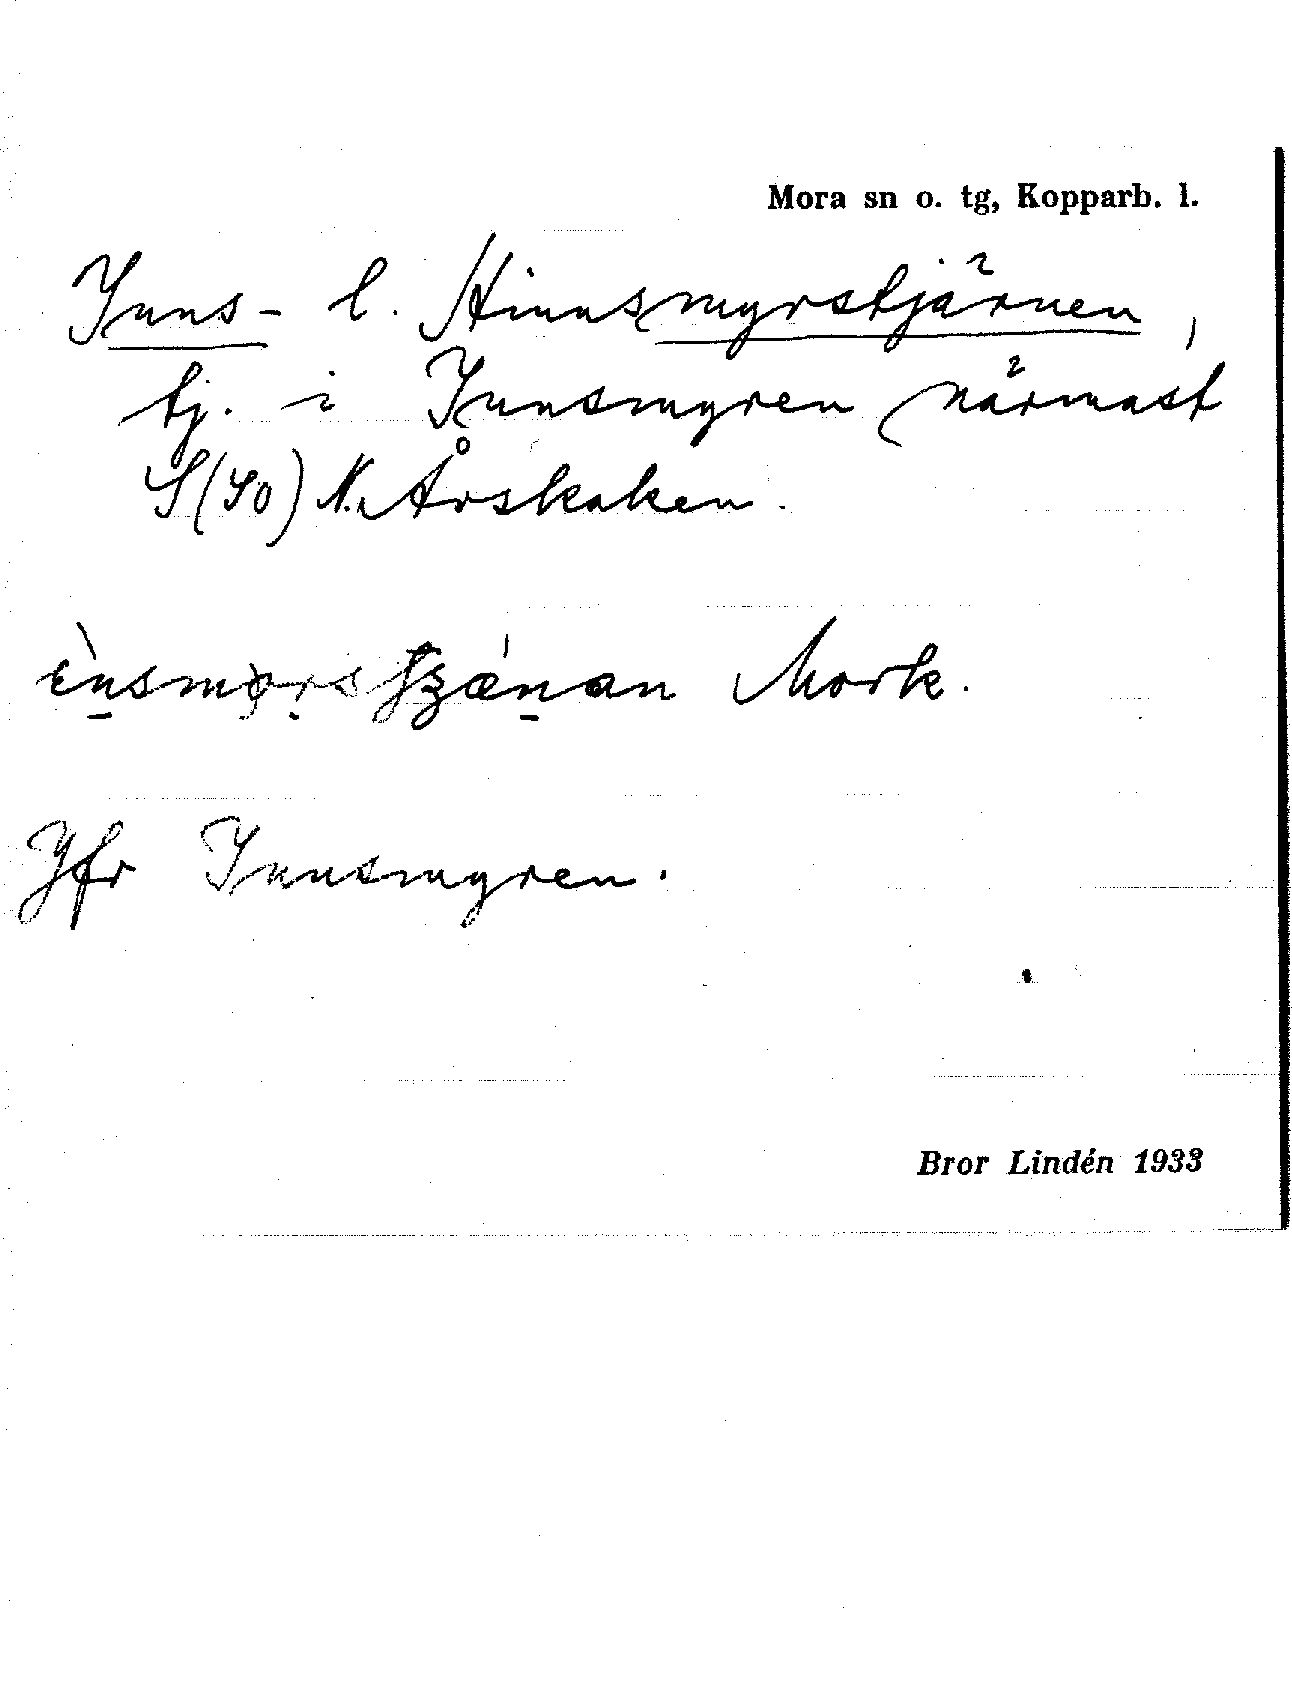 Mora sn o. tg, Kopparb. l.
Inns- l. Hinnsmyrstjärnen,
tj. i Innsmyren närmast
S(SO) N. Årskaken.
Mork.
Jfr Innsmyren.
Bror Lindén 1933